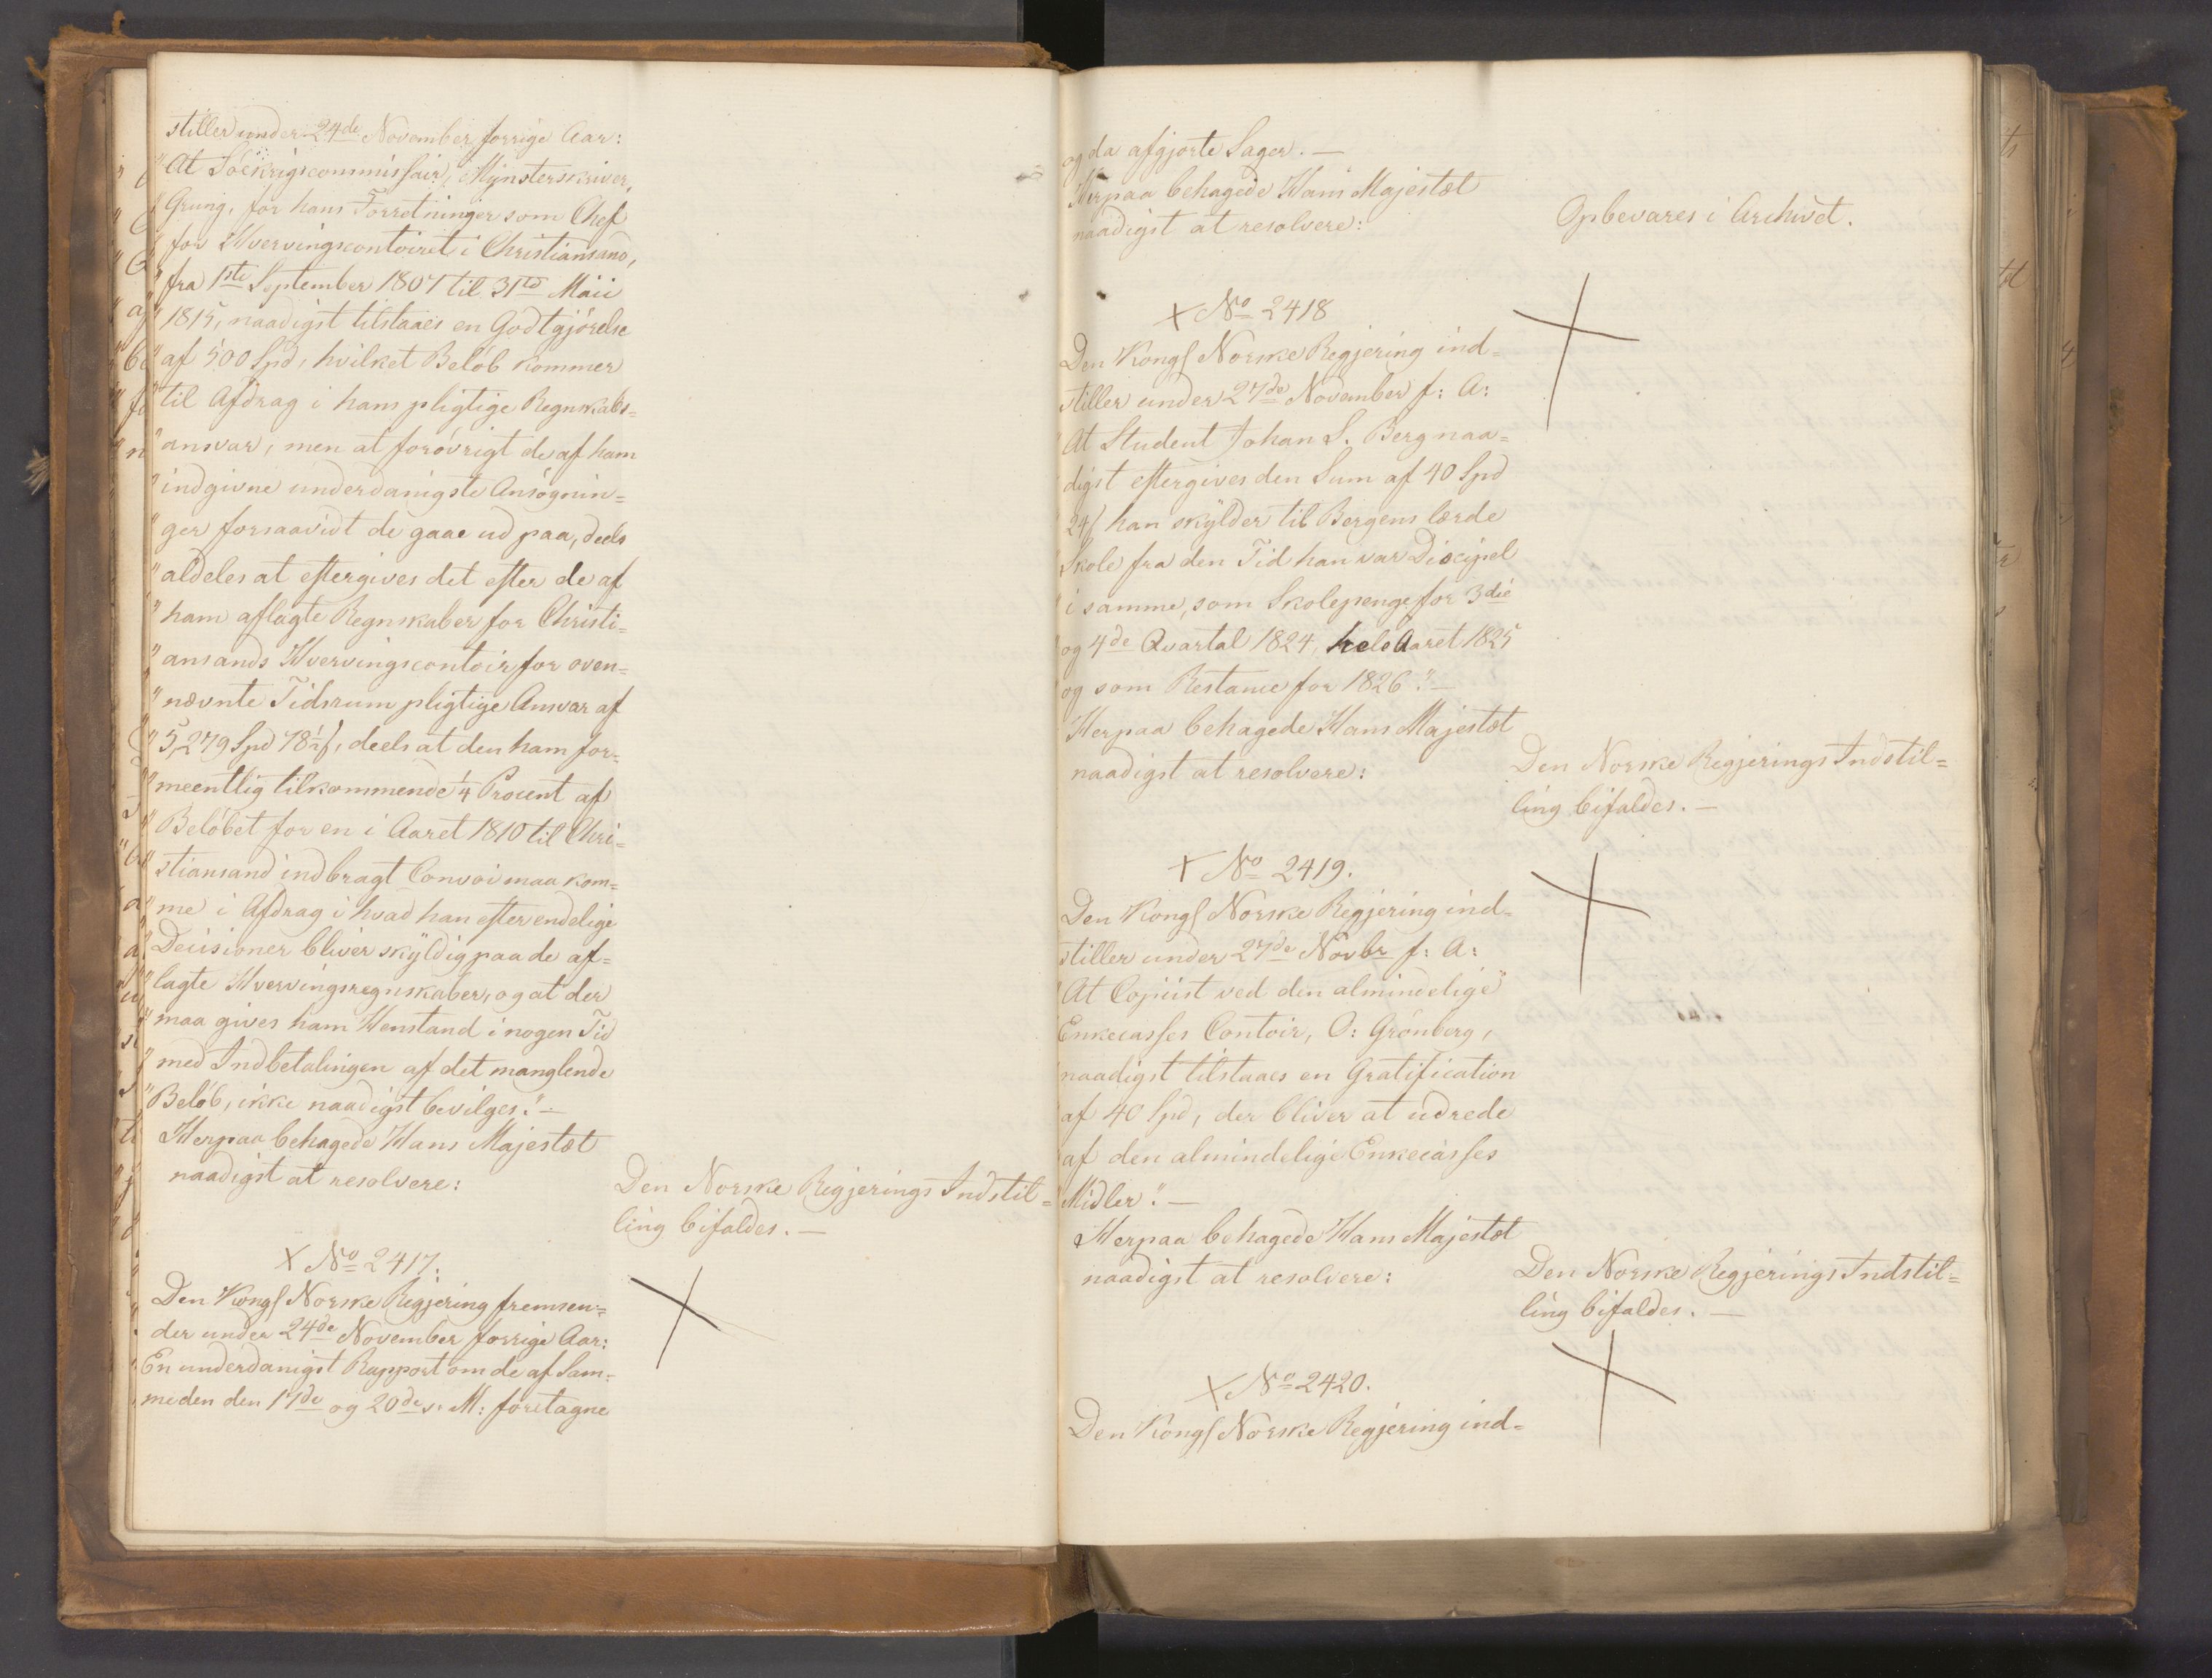 stiller under 24de November forrige Aar:
"At Söekrigscommissair, Mynsterskriver,
"Grung, for hans Forretninger som Chef
"for Hvervingscontoiret i Christiansand,
"fra 1ste September 1807 til 31te Maii
"1815, naadigst tilstaaes en Godtgjörelse
"af 500 Spd, hvilket Belöb kommer
"til Afdrag i hans pligtige Regnskabs=
"ansvar, men at forövrigt de af ham
"indgivne underdanigste Ansögnin=
"ger forsaavidt de gaae ud paa, deels
"aldeles at eftergives det efter de af
"ham aflagte Regnskaber for Christi=
"ansands Hvervingscontoir for oven=
"nævnte Tidsrum pligtige Ansvar af
"5,279 Spd 78½ ſ, deels at den ham for=
"meentlig tilkommende ¼ Procent af
"Belöbet for en i Aaret 1810 til Chri=
"stiansand indbragt Convoi maa kom=
"me i Afdrag i hvad han efter endelige
"Decisioner bliver skÿldig paa de af=
"lagte Hvervingsregnskaber, og at der
"maa gives ham Henstand i nogen Tid
"med Indbetalingen af det manglende
"Belöb, ikke naadigst bevilges." —
Herpaa behagede Hans Majestæt
naadigst at resolvere:
Den Norske Regjerings Indstil=
ling bifaldes. —
X No 2417.
Den Kongſ Norske Regjering fremsen=
der under 24de November forrige Aar:
En underdanigst Rapport om de af Sam=
me den den 17de og 20de s: M: foretagne
og da afgjorte Sager. —
Herpaa behagede Hans Majestæt
naadigst at resolvere:
Opbevares i Archivet.
X No 2418
Den Kongſ Norske Regjering ind=
stiller under 27de November f: A:
"At Student Johan S. Berg naa=
digst eftergives den Sum af 40 Spd
24ſ han skÿlder til Bergens lærde
Skole fra den Tid han var Discipel
"i samme, som Skolepenge for 3die
og 4de Qvartal 1824, hele Aaret 1825
og som Restance for 1826." —
Herpaa behagede Hans Majestæt
naadigst at resolvere:
Den Norske Regjerings Indstil=
ling bifaldes. —
X No 2419.
Den Kongſ Norske Regjering ind=
stiller under 27de Novbr f: A:
"At Copiist ved den almindelige
Enkecasses Contoir, O: Grönberg,
naadigst tilstaaes en Gratification
af 40 Spd, der bliver at udrede
af den almindelige Enkecasses
Midler." —
Herpaa behagede Hans Majestæt
naadigst at resolvere:
Den Norske Regjerings Indstil=
ling bifaldes. —
X No 2420.
Den Kongſ Norske Regjering ind=